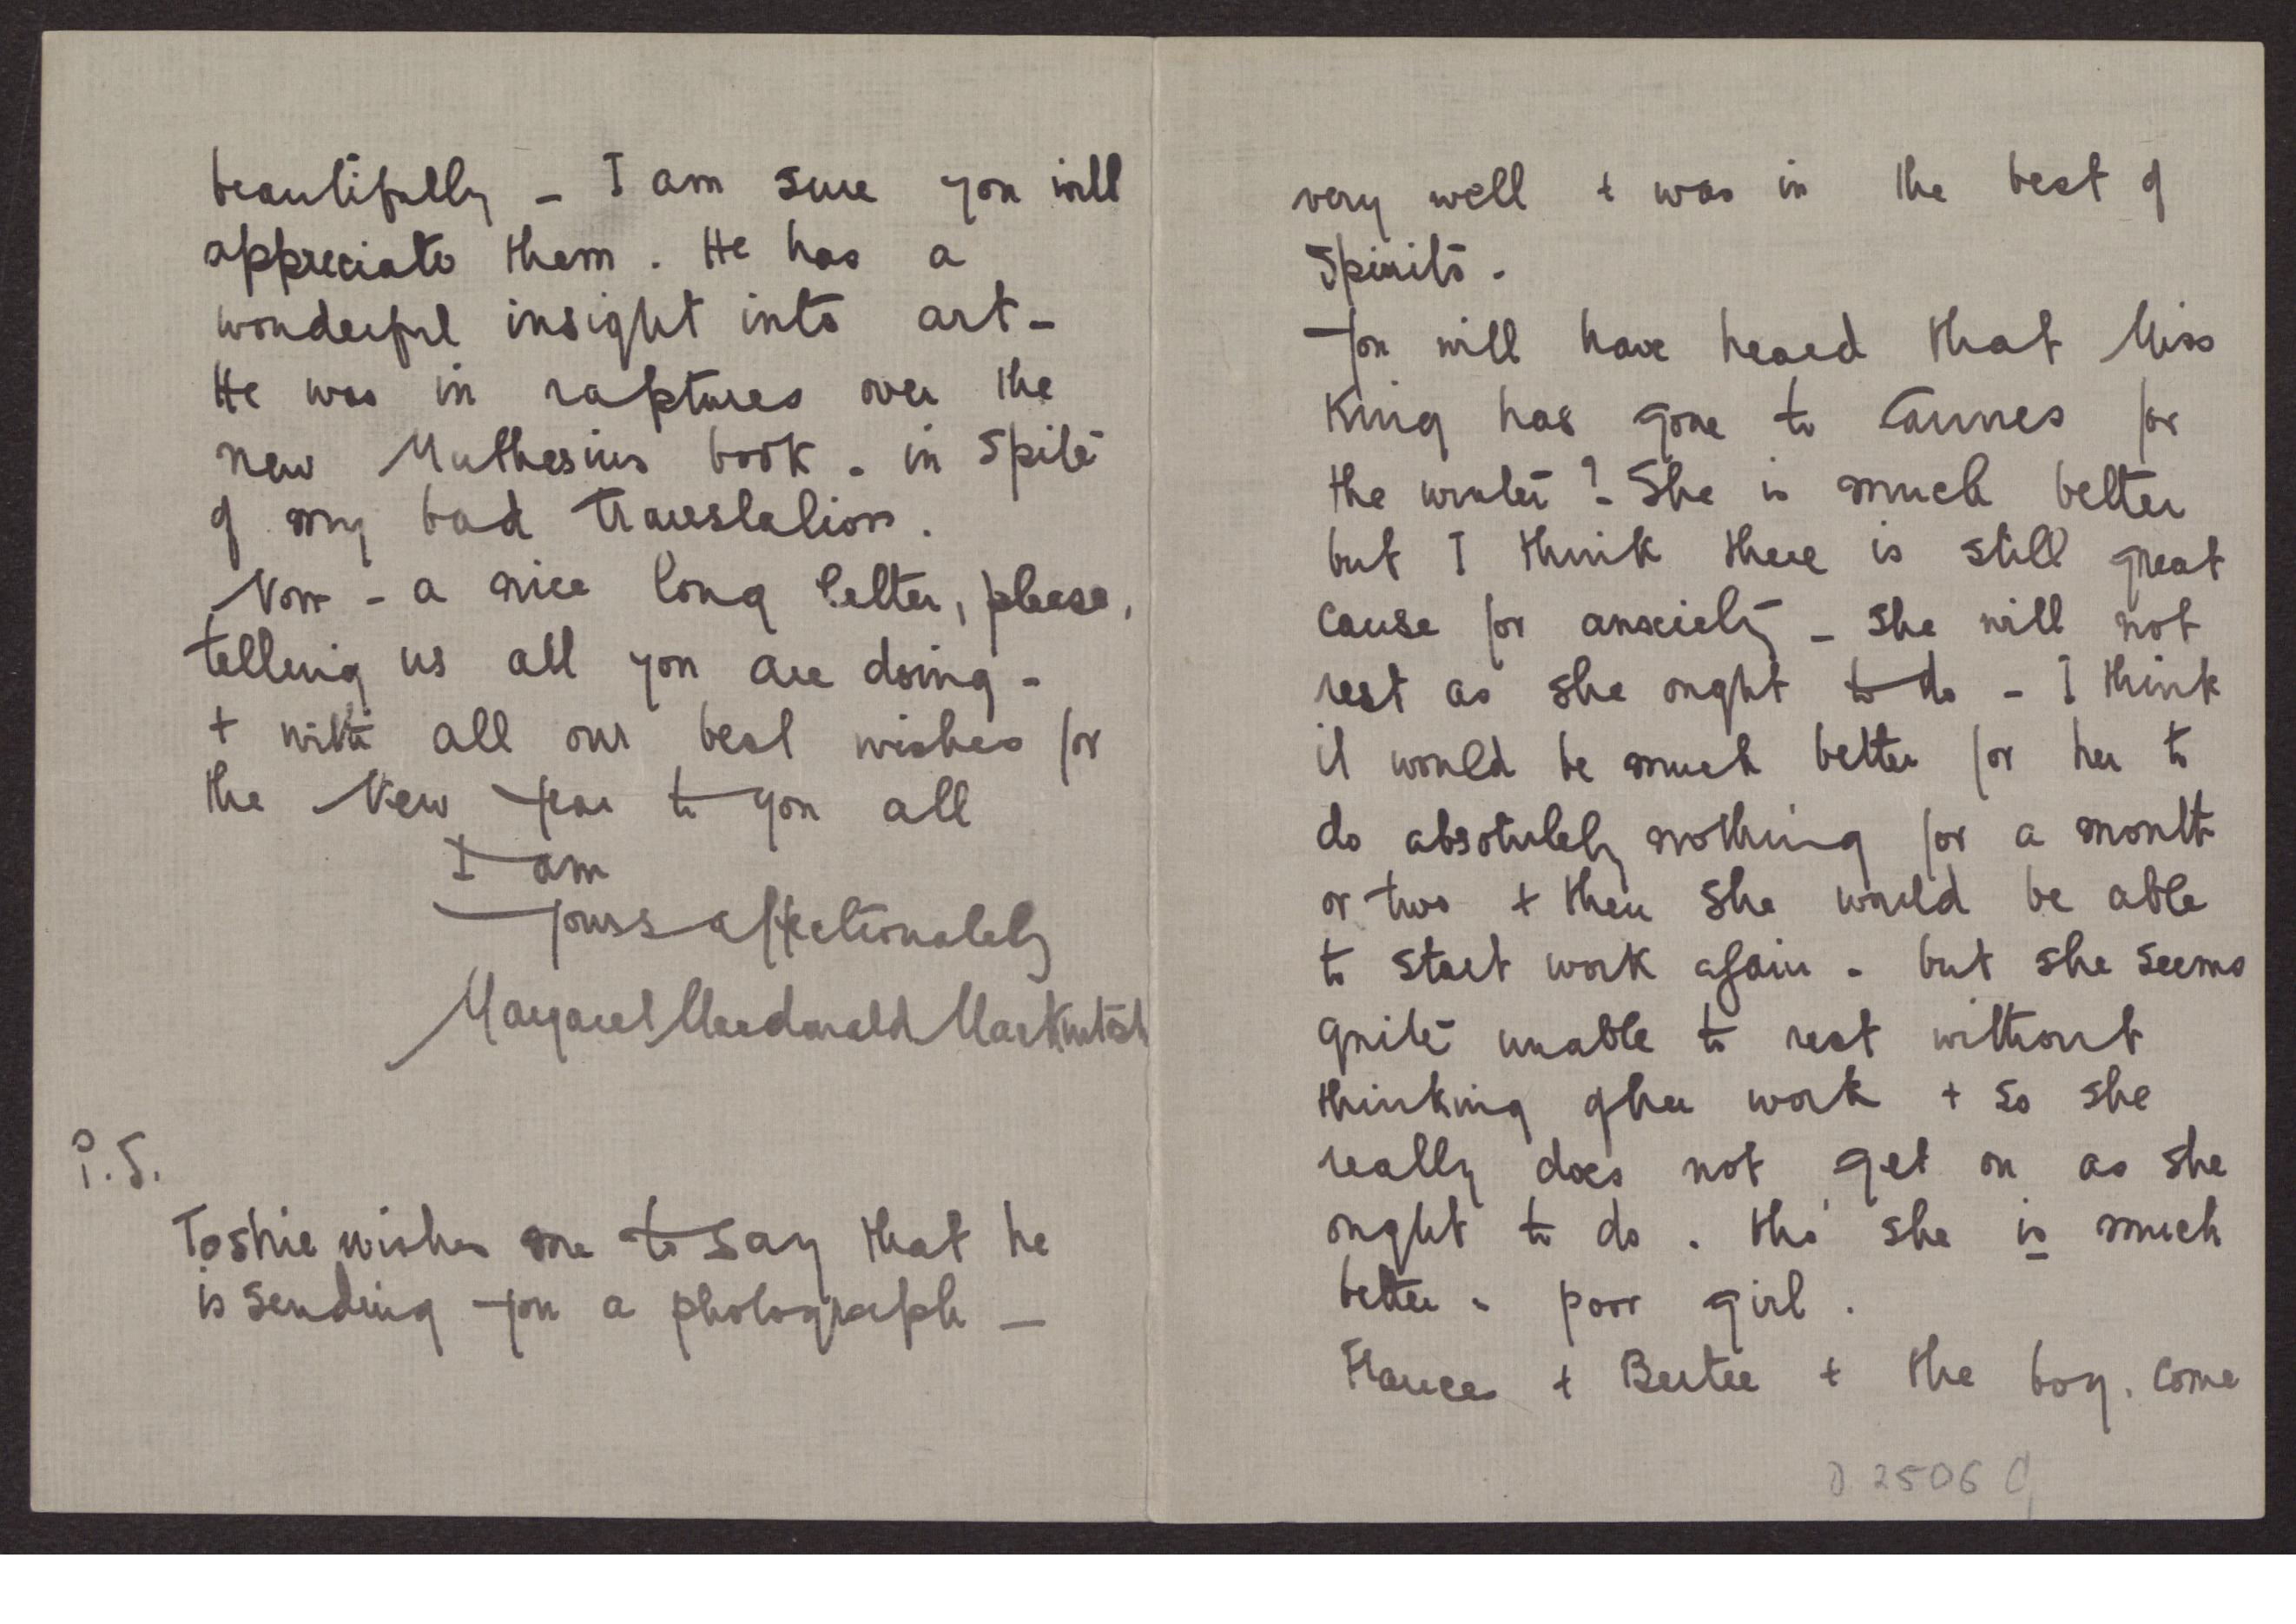 beautifully - I am sure you will
appreciate them. He has a
wonderful insight into art -
He was in raptures over the
new Muthesius book - in spite
of my bad translation.
Now - a nice long letter, please,
telling us all you are doing -
+ with all our best wishes for
the New Year to you all
I am
Yours affectionately
Margaret Macdonald Mackintosh
P.S.
Toshie wishes me to say that he
is sending you a photograph —
very well + was in the best of
Spirits -
You will have heard that Miss
King has gone to Cannes for
the winter? - She is much better
but I think there is still great
cause for anxiety - she will not
rest as she ought to do - I think
it would be much better for her to
do absolutely nothing for a month
or two + then she would be able
to start work again - but she seems
quite unable to rest without
thinking of her work + so she
really does not get on as she
ought to do. tho' she is much
better - poor girl.
Frances + Bertie + the boy. come
D 2506 g